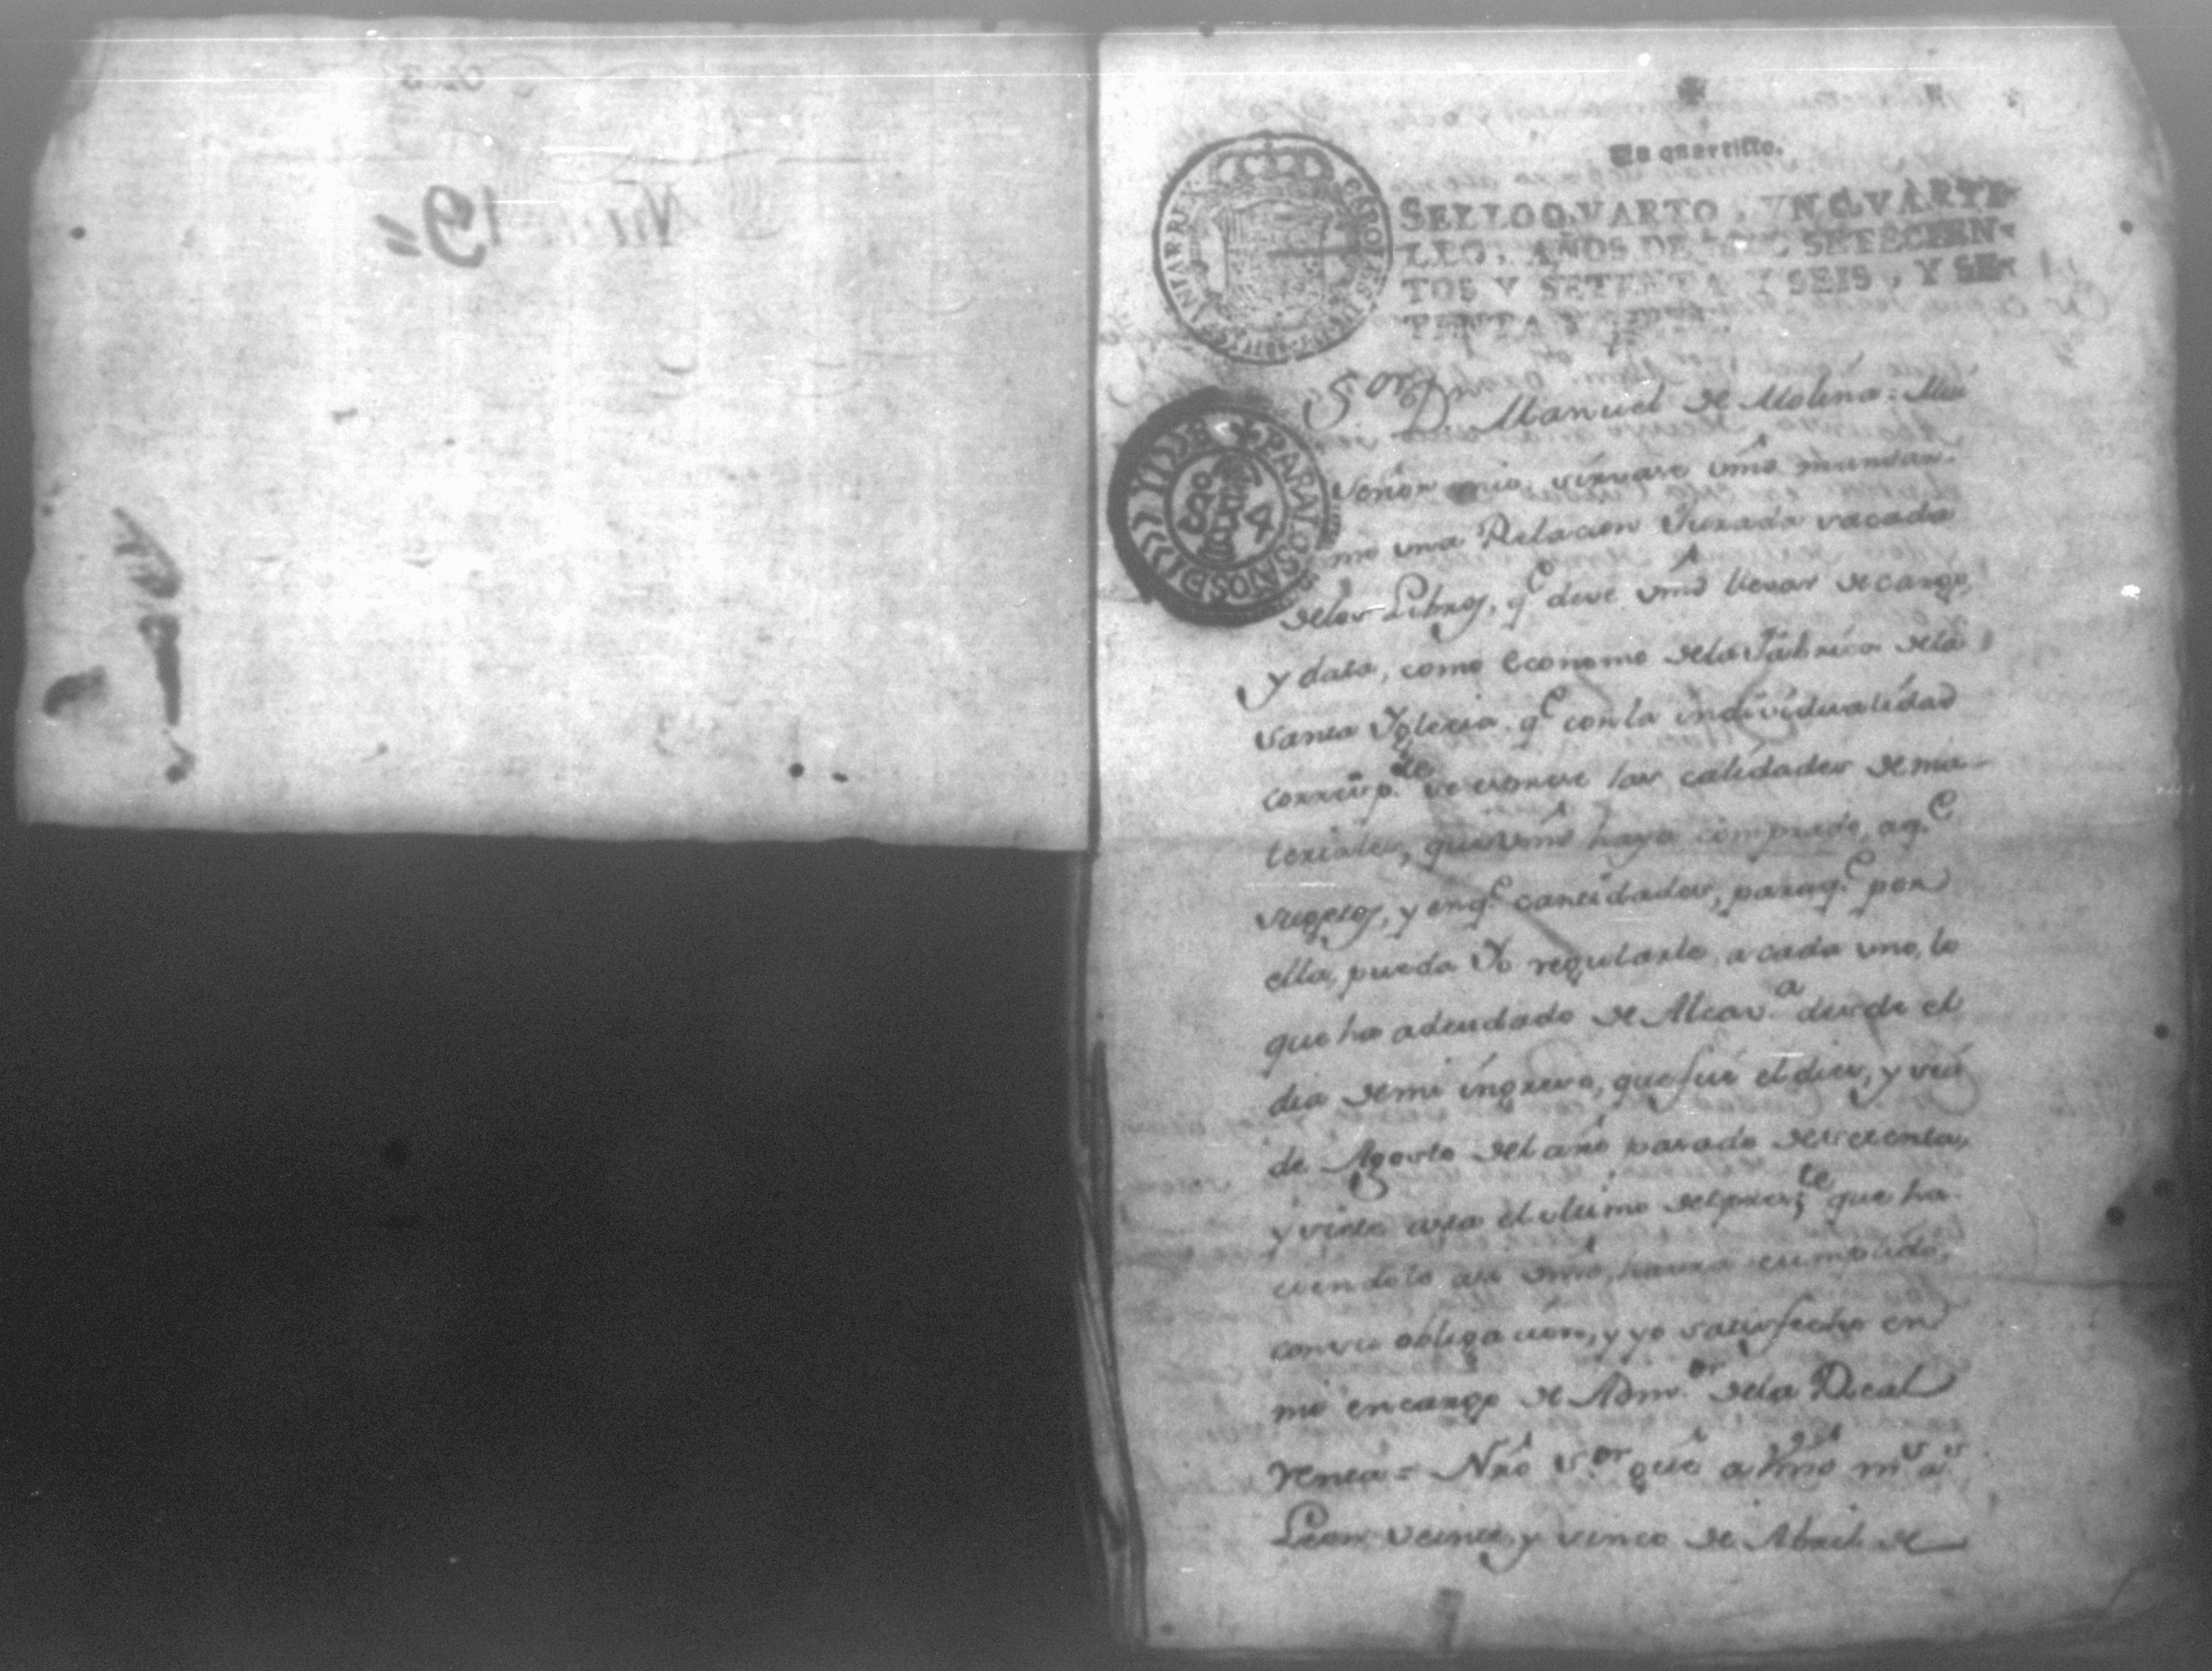 Un quartillo.
SELLO QVARTO, VN QVARTI-
LLO, AÑOS DE SETECIEN-
TOS Y SETENTA Y SEIS, Y SE-
TENTA Y
S.or D.n Manuel de Molina: Mui
señor mio. sirvase vmd mandar-
me una Relacion Jurada sacada
delos Libros, q.e deve vmd llevar de cargo,
y data, como Economo dela Fabrica dela
Santa Yglesia. q.e con la individualidad
corresp.te se exprese las calidades de ma-
teriales, que vmd haya comprado, aq.e
sugetos, y enq.e cantidades, paraq.e por
ella, pueda Yo regularle, a cada uno, lo
que ha adeudado de Alcav.a desde el
dia demi ingreso, que fué el dies, y seis
de Agosto del año pasado desetenta,
y siete asta el ultimo delpres.te que ha
ciendolo asi vmd, havra cumplido,
consu obligacion, y yo satisfecho en
mi encargo de Adm.or dela Real
renta = Nrô S.or gue a Vmd m.s a.s
Leon veinte, y sinco de Abril de
PARA LOS AÑOS DE
Num 19=